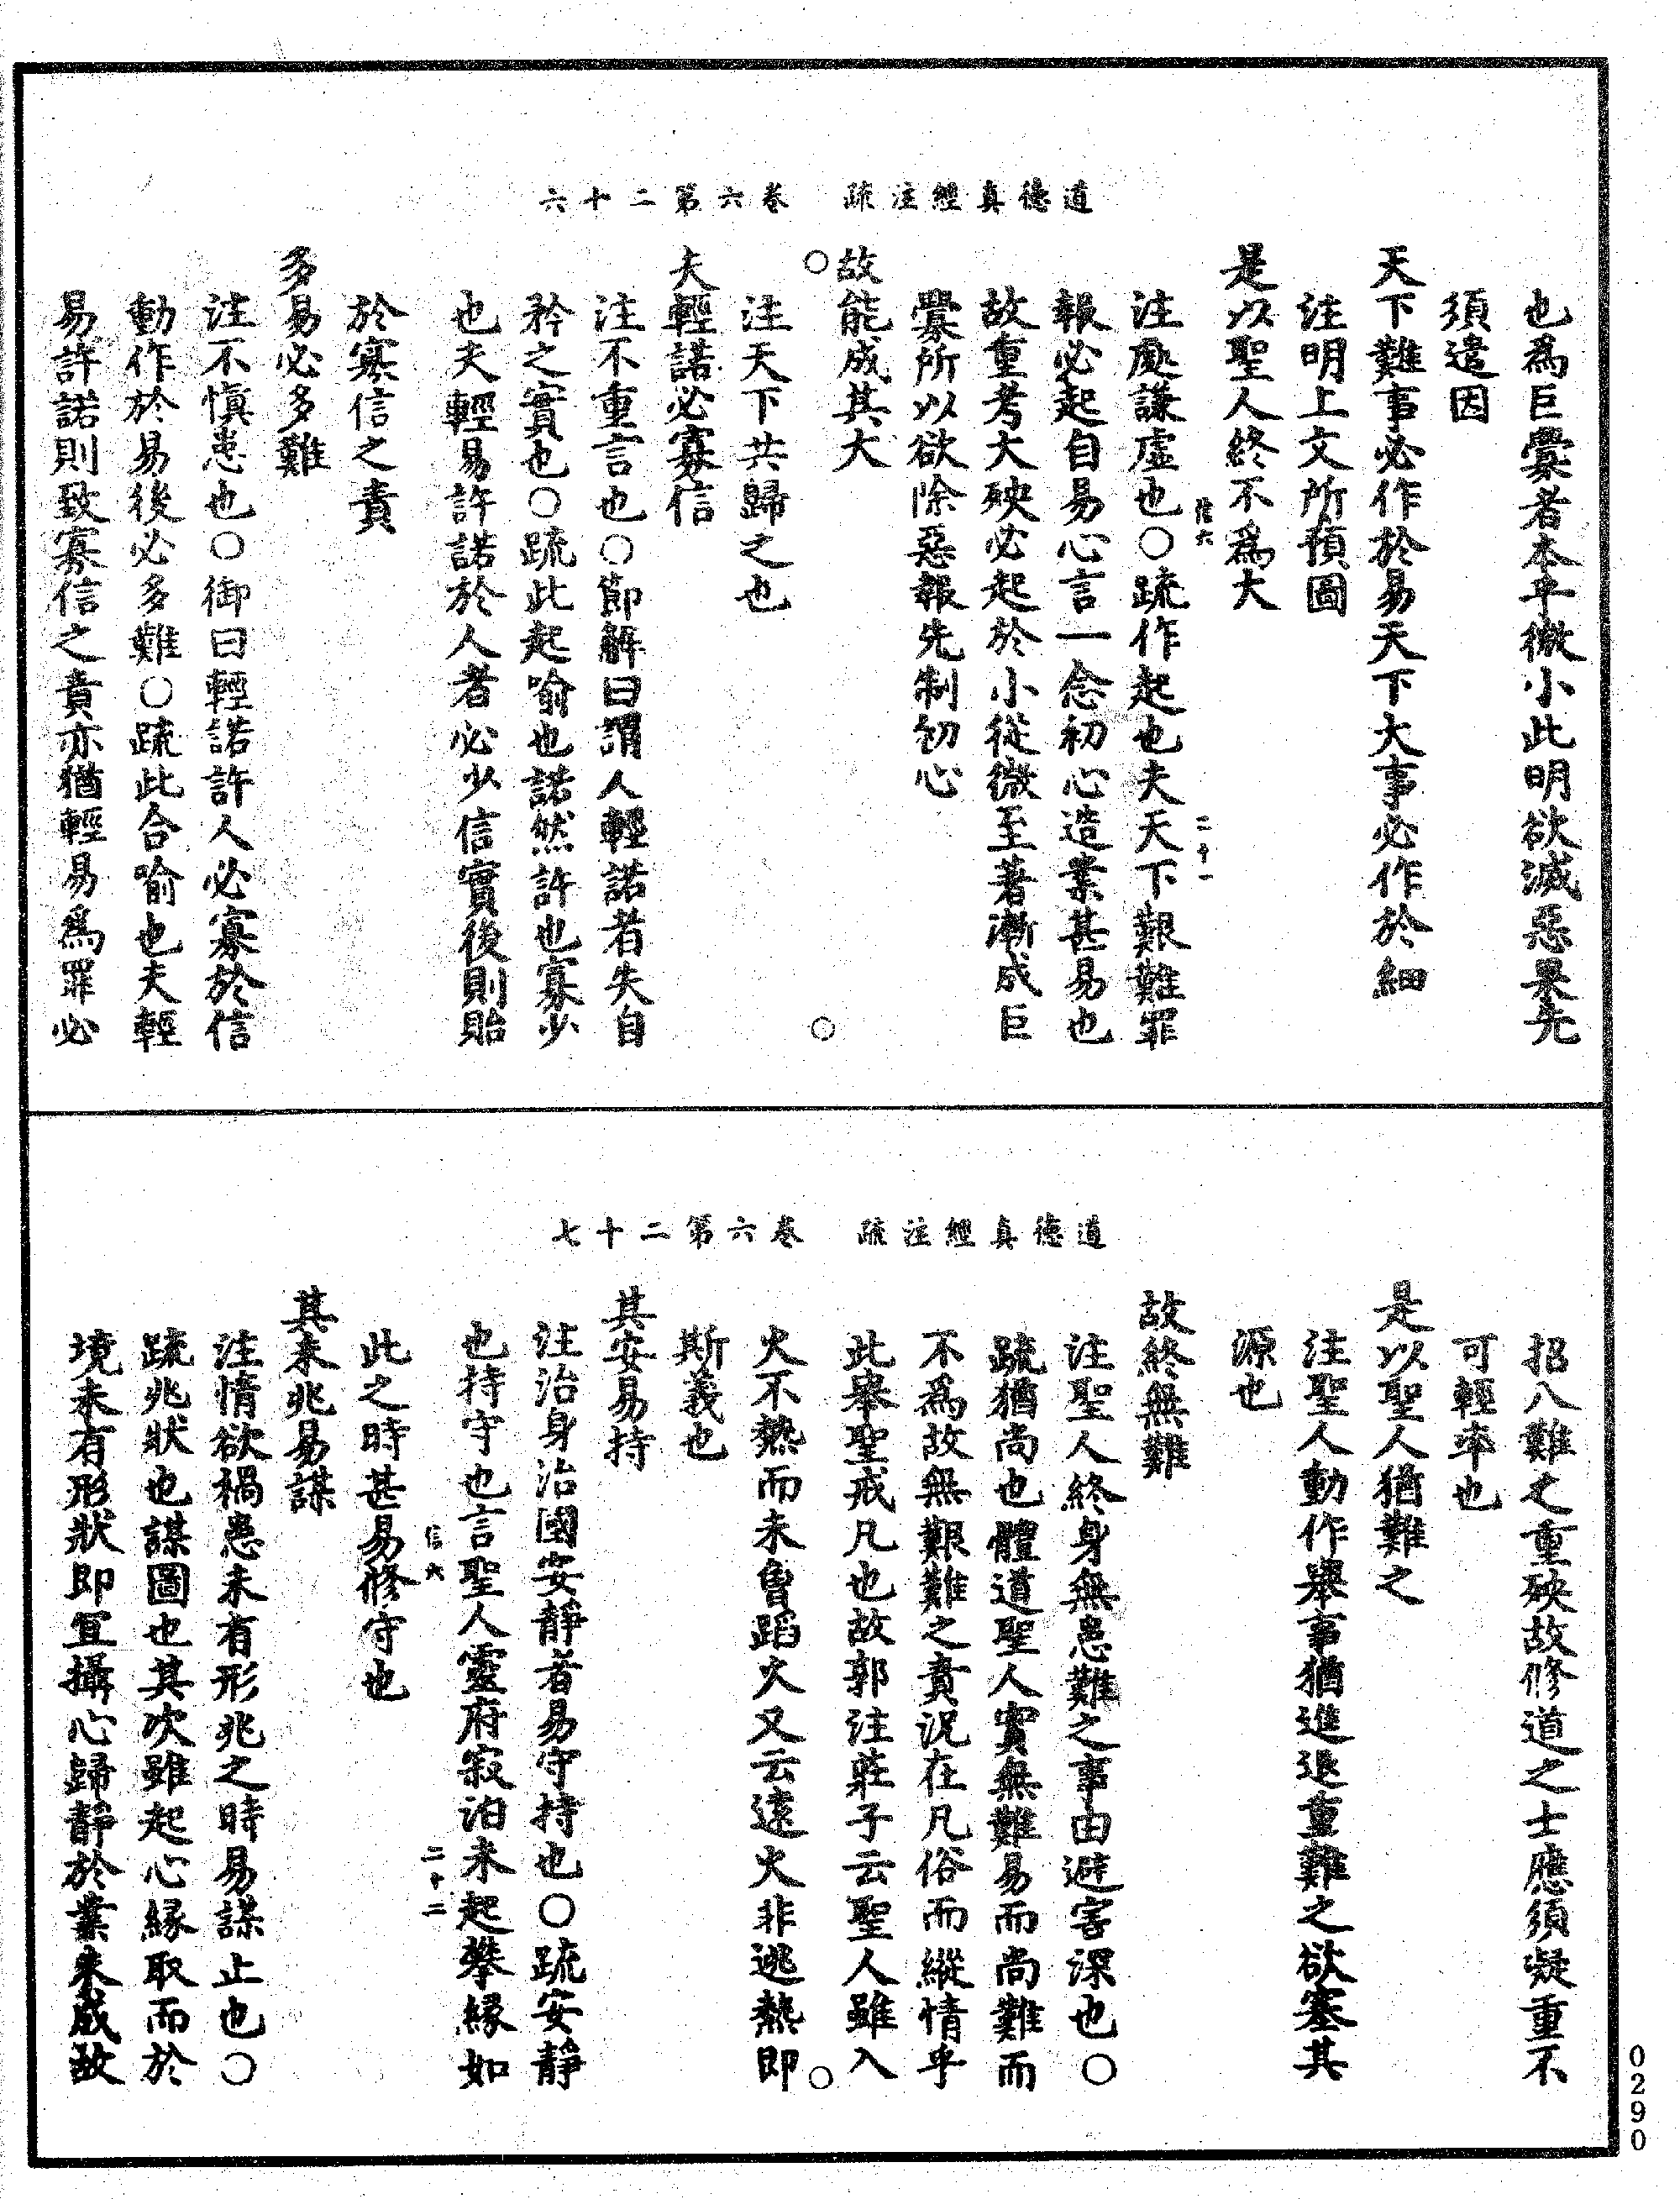 道德真經注疏　卷六第二十六
也為巨釁者本乎微小此明欲滅惡果先
須遣因
天下難事必作於易天下大事必作於細
注明上文所預圖
是以聖人終不為大
信六　二十一
注處謙虛也○疏作起也夫天下艱難罪
報必起自易心言一念初心造業甚易也
故重考大殃必起於小從微至著漸成巨
釁所以欲除惡報先制初心
故能成其大
○　○
注天下共歸之也
夫輕諾必寡信
注不重言也○節解曰謂人輕諾者失自
矜之實也○疏此起喻也諾然許也寡少
也夫輕易許諾於人者必少信實後則貽
於寡信之責
多易必多難
注不慎患也○御曰輕諾許人必寡於信
動作於易後必多難○疏此合喻也夫輕
易許諾則致寡信之責亦猶輕易為罪必
道德真經注疏　卷六第二十七
招八難之重殃故修道之士應須凝重不
可輕率也
是以聖人猶難之
注聖人動作舉事猶進退重難之欲塞其
源也
故終無難
注聖人終身無患難之事由避害深也○
疏猶尚也體道聖人實無難易而尚難而
不為故無艱難之責況在凡俗而縱情乎
此舉聖戒凡也故郭注莊子云聖人雖入
火不熱而未曾蹈火又云遠火非逃熱即
○
斯義也
其安易持
注治身治國安靜者易守持也○疏安靜
也持守也言聖人靈府寂泊未起攀緣如
信六　二十二
此之時甚易修守也
其未兆易謀
注情欲禍患未有形兆之時易謀止也○
疏兆狀也謀圖也其次雖起心緣取而於
境未有形狀即宜攝心歸靜於業未成故
0290